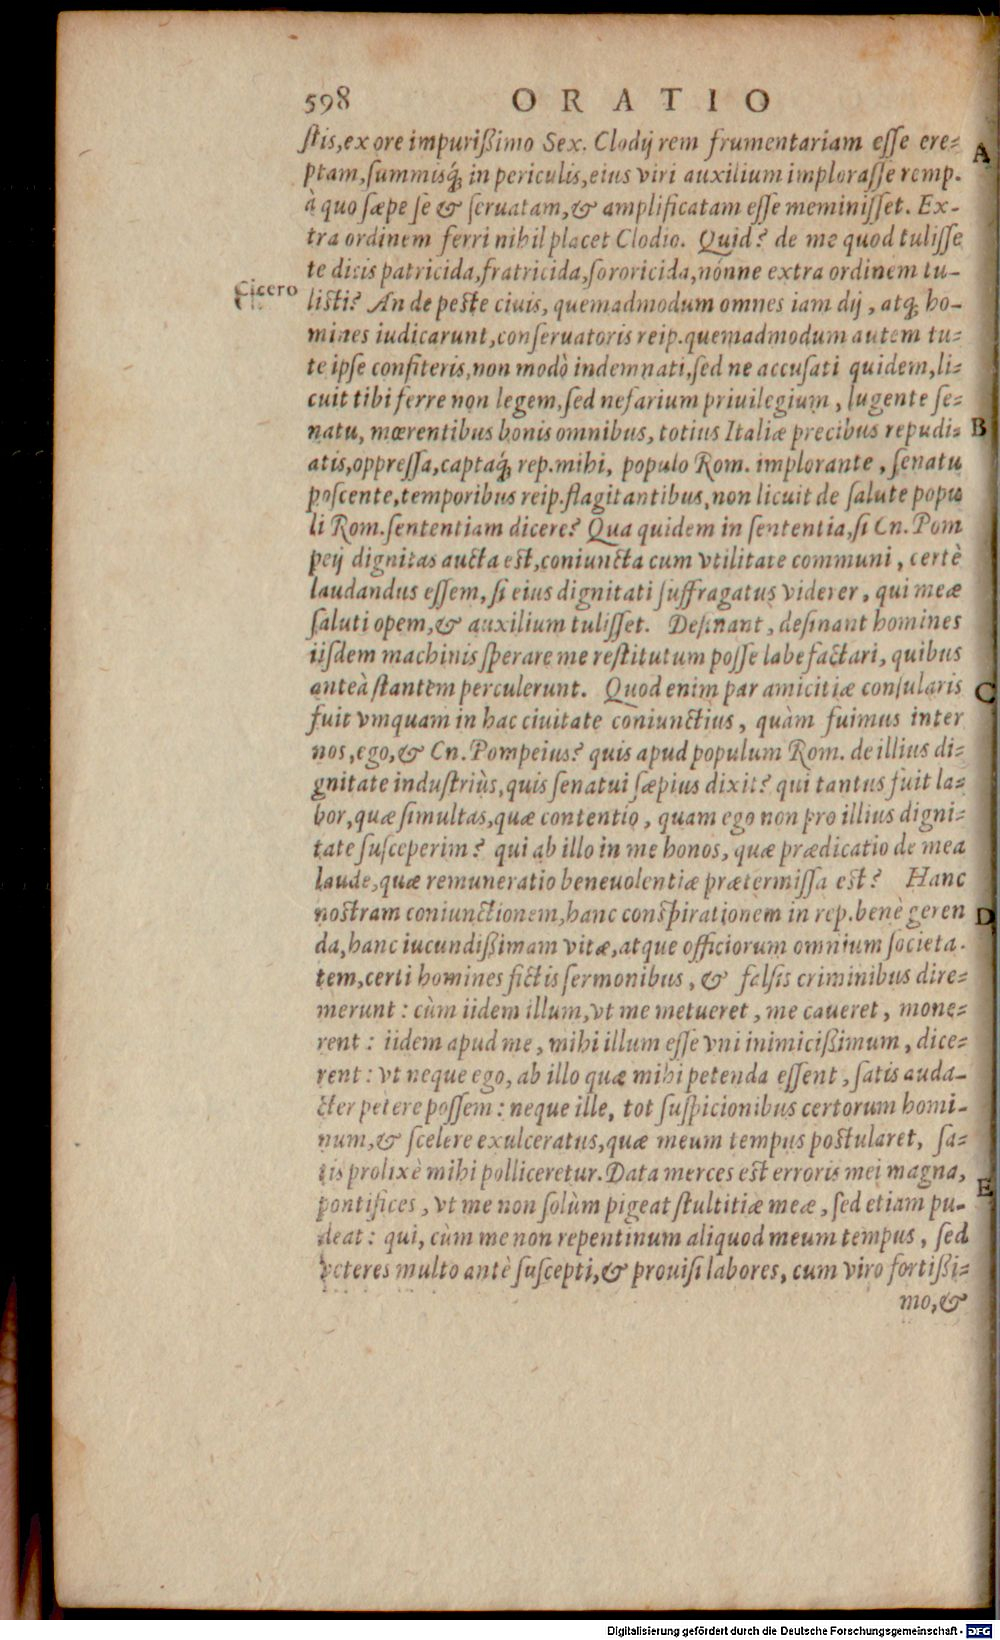 598 ORATIO
ſtis,ex ore impurißimo Sex. Clodij rem frumentariam eſſe ere= A
ptam,ſummisq́; in periculis,eius viri auxilium imploraſſe remp.
à quo ſæpe ſe & ſeruatam,& amplificatam eſſe meminiſſet. Ex-
tra ordinem ferri nihil placet Clodio. Quid? de me quod tuliſſe
te dicis patricida,fratricida,ſororicida,nónne extra ordinem tu-
Cicero
liſti? An de peſte ciuis, quemadmodum omnes iam dij, atq; ho-
mines iudicarunt,conſeruatoris reip.quemadmodum autem tu=
te ipſe confiteris,non modò indemnati,ſed ne accuſati quidem,li=
cuit tibi ferre non legem,ſed nefarium priuilegium, lugente ſe=
natu, mœrentibus bonis omnibus, totius Italiæ precibus repudi= B
atis,oppreſſa,captaq́; rep.mihi, populo Rom. implorante, ſenatu
poſcente,temporibus reip.flagitantibus,non licuit de ſalute popu
li Rom.ſententiam dicere? Qua quidem in ſententia,ſi Cn. Pom
peij dignitas aucta eſt,coniuncta cum vtilitate communi, certè
laudandus eſſem, ſi eius dignitati ſuffragatus viderer, qui meæ
ſaluti opem,& auxilium tuliſſet. Deſinant, deſinant homines
iiſdem machinis ſperare me reſtitutum poſſe labefactari, quibus
anteà ſtantem perculerunt. Quod enim par amicitiæ conſularis C
fuit vmquam in hac ciuitate coniunctius, quàm fuimus inter
nos,ego,& Cn. Pompeius? quis apud populum Rom. de illius di=
gnitate induſtriùs,quis ſenatui ſæpius dixit? qui tantus fuit la=
bor,quæ ſimultas,quæ contentio, quam ego non pro illius digni=
tate ſuſceperim? qui ab illo in me honos, quæ prædicatio de mea
laude,quæ remuneratio beneuolentiæ prætermiſſa eſt? Hanc
noſtram coniunctionem,hanc conſpirationem in rep.benè geren D
da,hanc iucundißimam vitæ,atque officiorum omnium ſocieta.
tem,certi homines fictis ſermonibus, & falſis criminibus dire=
merunt: cùm iidem illum,vt me metueret, me caueret, mone=
rent: iidem apud me, mihi illum eſſe vni inimicißimum, dice=
rent: vt neque ego, ab illo quæ mihi petenda eſſent, ſatis auda-
cter petere poſſem: neque ille, tot ſuſpicionibus certorum homi-
num,& ſcelere exulceratus,quæ meum tempus poſtularet, ſa=
tis prolixè mihi polliceretur. Data merces eſt erroris mei magna, E
pontifices, vt me non ſolùm pigeat ſtultitiæ meæ, ſed etiam pu-
deat: qui, cùm me non repentinum aliquod meum tempus, ſed
veteres multo antè ſuſcepti,& prouiſi labores, cum viro fortißi=
mo,&
Digitalisierung gefördert durch die Deutsche Forschungsgemeinschaft - DFG